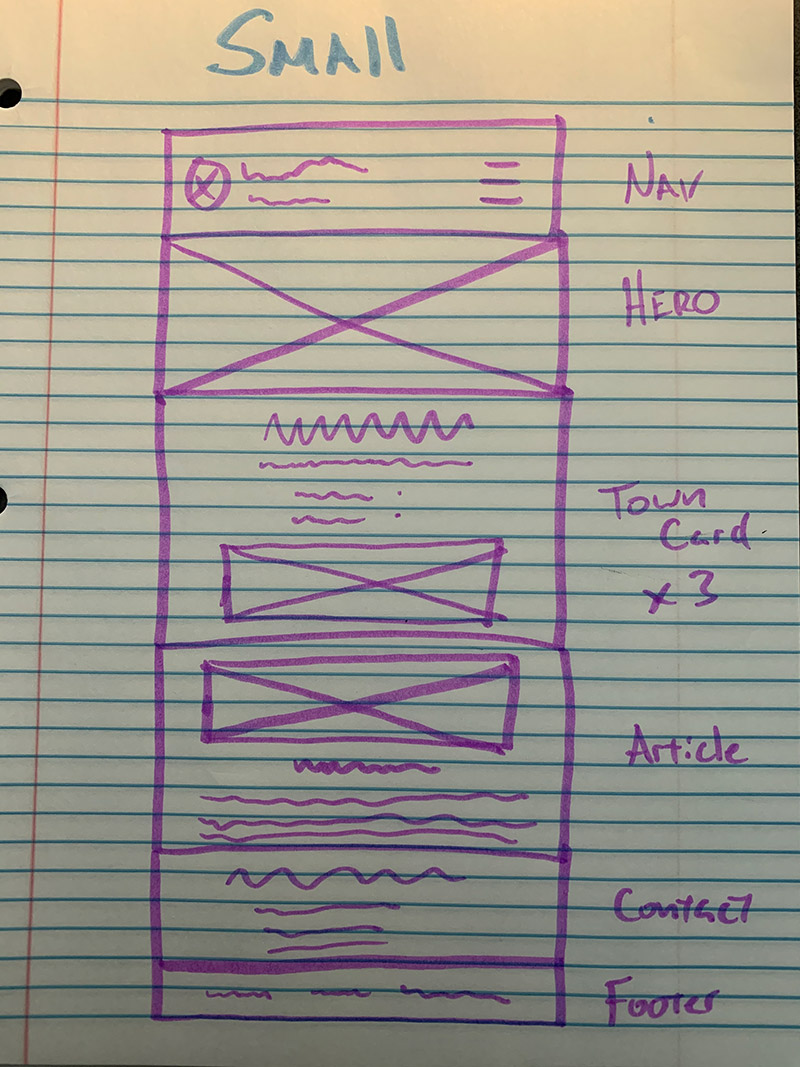 Small
Nav
Hero
Town
Card
x3
Article
Contact
Footer